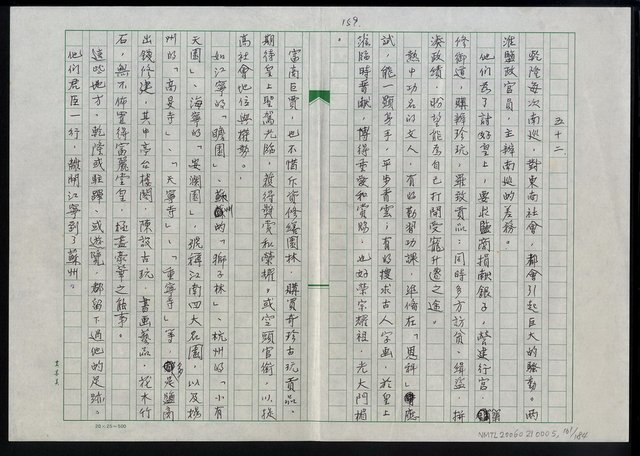 159.
五十二
乾隆每次南巡，對東南社會，都會引起巨大的騷動。兩
淮鹽政官員，主辦南巡的差務。
他們為了討好皇上，要求鹽商捐献銀子，營建行宮，
修御道，購辦珍玩，羅致貢品；同時多方訪貧、緝盜，拼
湊政績，盼望能為自己打開受寵升遷之途。
熱中功名的文人，有的勤習功課，準備在「恩科」應
試，能一顯身手，平步青雲；有的搜求古人字画，於皇上
蒞臨時晋献，博得垂愛和賞賜，也好榮宗耀祖，光大門楣
富商巨賈，也不惜斥資修繕園林，購買奇珍古玩貢品，
期待皇上聖駕光臨，獲得獎賞和榮耀。或空頭官銜，以換
高社會地位與權勢。
如江寧的「瞻園」、蘇州的「獅子林」、杭州的「小有
天園」、海寧的「安瀾園」，號稱江南四大名園，以及揚
州的「高旻寺」、「天寧寺」、「重寧寺」等，多是鹽商
出錢修建，其中亭台樓閣，陳設古玩，書画藝品，花木竹
石，無不佈置得富麗堂皇，極盡豪華之能事。
這些地方，乾隆或駐蹕、或遊覽，都留下過他的足跡。
他們君臣一行，離開江寧到了蘇州。
20×25=500
NMTL20060210005, 161/184